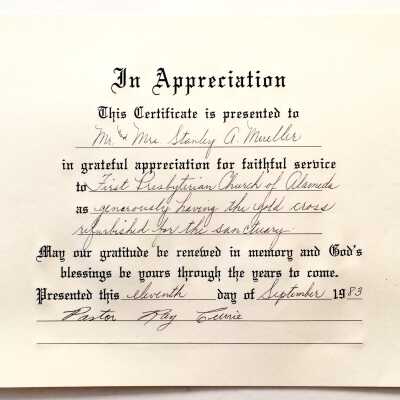 In Appreciation
This Certificate is presented to
Mr. & Mrs. Stanley A. Mueller
in grateful appreciation for faithful service
to First Presbyterian Church of Alameda
as generously having the gold cross
refurbished for the sanctuary.
May our gratitude be renewed in memory and God's
blessings be yours through the years to come.
Presented this eleventh day of September 1983
Pastor Ray Currie